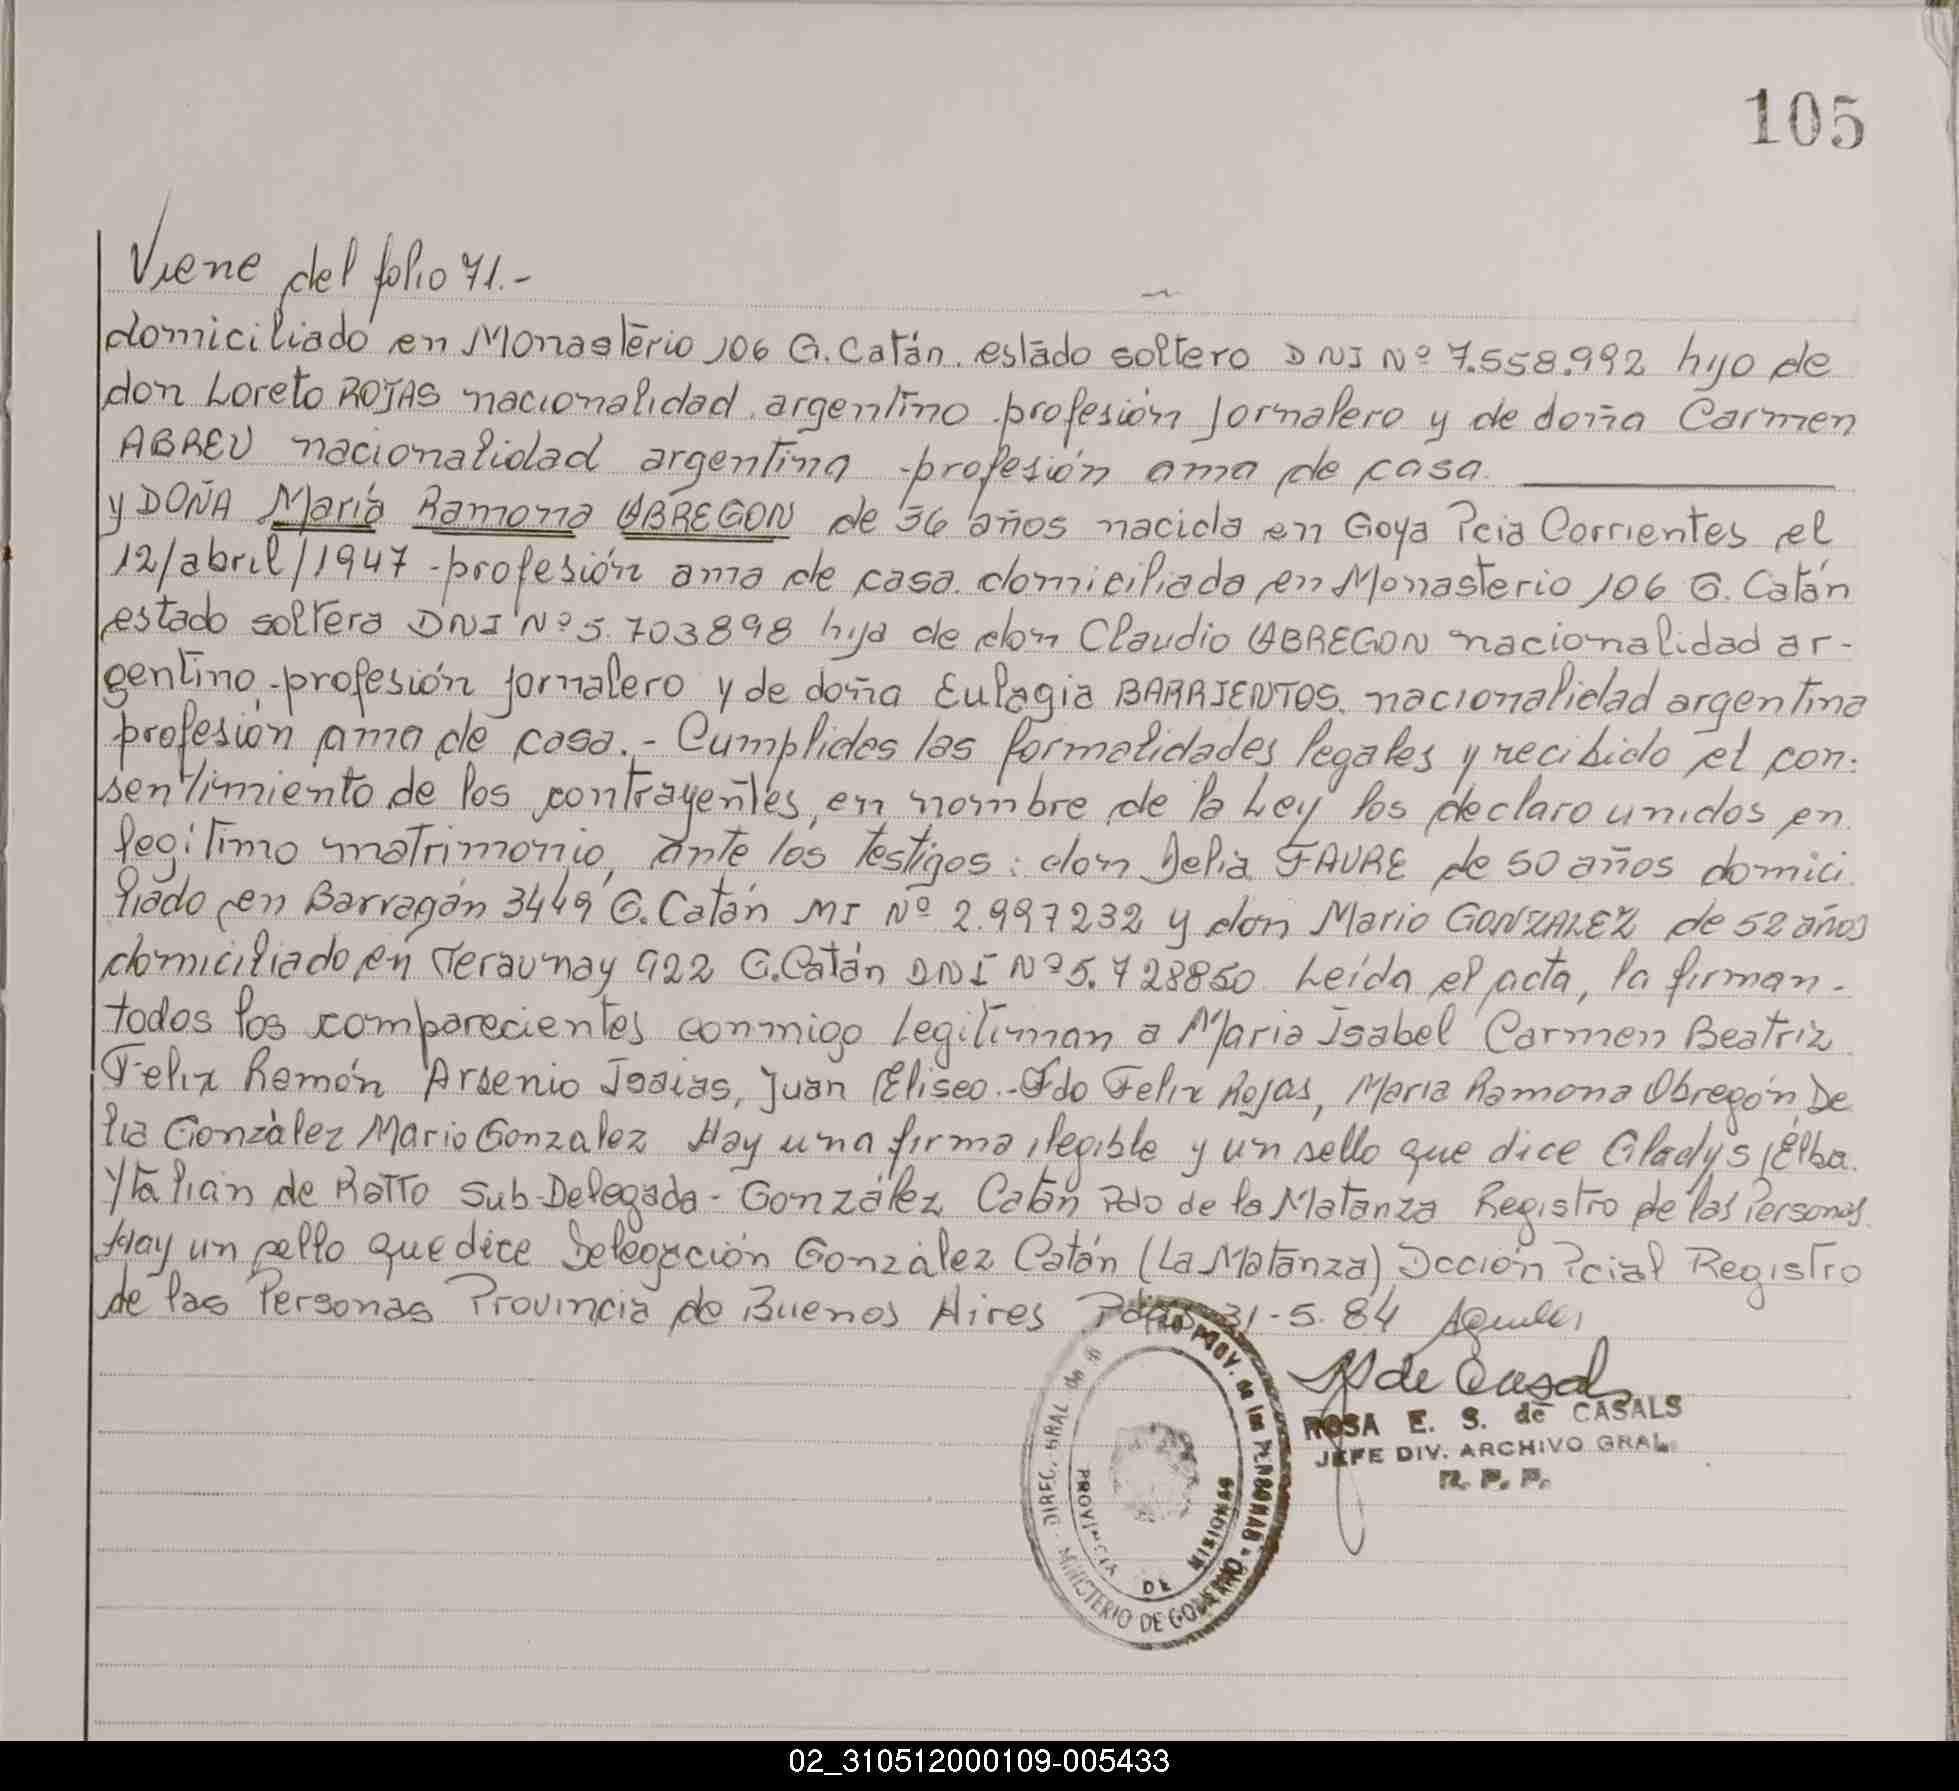 105
Viene del folio 71.-
domiciliado en Monasterio 106 G. Catán. estado soltero DNI Nº 7.558.992 hijo de
don Loreto ROJAS nacionalidad argentino profesión Jornalero y de doña Carmen
ABREU nacionalidad argentina profesión ama de casa.
y DOÑA María Ramona OBREGON de 36 años nacida en Goya Pcia Corrientes el
12/abril/1947 profesión ama de casa. domiciliada en Monasterio 106 G. Catán
estado soltera DNI Nº 5.703898 hija de don Claudio OBREGON nacionalidad ar-
gentino profesión jornalero y de doña Eulagia BARRIENTOS. nacionalidad argentina
profesión ama de casa.- Cumplidas las formalidades legales y recibido el con-
sentimiento de los contrayentes, en nombre de la Ley los declaro unidos en
legítimo matrimonio, ante los testigos: don Delia FAURE de 50 años domici
liado en Barragán 3449 G. Catán MI Nº 2.997232 y don Mario GONZALEZ de 52 años
domiciliado en 922 G. Catán DNI Nº 5.728850 Leída el acta, la firman
todos los comparecientes conmigo Legitiman a Maria Isabel Carmen Beatriz
Felix Ramón Arsenio Isaias, Juan Eliseo.- Fdo Felix Rojas, Maria Ramona Obregón, De
lia González Mario Gonzalez Hay una firma ilegible y un sello que dice Gladys Elba
Ytalián de Ratto Sub-Delegada- González Catán Pdo de la Matanza Registro de las Personas
Hay un sello que dice Delegación González Catán (La Matanza) Dcción Pcial Registro
de las Personas Provincia de Buenos Aires Pdas 31-5-84
de Casals
ROSA E. S. de CASALS
JEFE DIV. ARCHIVO GRAL.
R. P. P.
DIREC. GRAL. PROV. de las PERSONAS
MINISTERIO DE GOBIERNO
PROVINCIA DE MISIONES
02_310512000109-005433